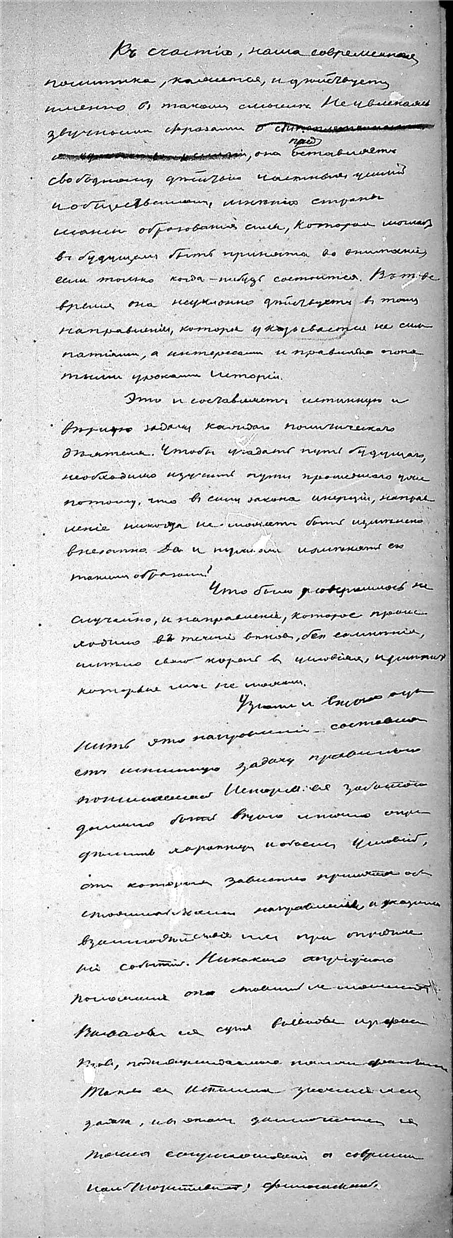 Къ счастію, наша современная
политика, кажется, и дѣйствуетъ
именно въ такомъ смыслѣ. Не увлекаясь
звучными фразами о
она предоставляетъ
свободному дѣйствію частныхъ усилій
и общественному мнѣнію страны
образованія силы, которая можетъ
въ будущемъ быть принята во вниманіе,
если только когда-нибудь состоится. Въ то же
время она неуклонно дѣйствуетъ въ томъ
направленіи, которое указывается не сим
патіями, а интересами и правильно поня
тыми уроками исторіи.
Это и составляетъ истинную и
вѣрную задачу каждаго политическаго
дѣятеля. Чтобы угадать путь будущаго,
необходимо изучить пути прошедшаго уже
потому, что въ силу закона инерціи, направ
леніе никогда не можетъ быть измѣнено
внезапно. Да и нужно ли измѣнять его
такимъ образомъ?
Что было и совершилось не
случайно, и направленіе, которое проис
ходило въ теченіе вѣковъ, безъ сомнѣнія,
имѣло свой корень въ условіяхъ, измѣнить
которыя мы не можемъ.
Узнать и вѣрно оцѣ
нить это направленіе составля
етъ истинную задачу правильно
понимаемой Исторіи: ея заботою
должно быть вѣрно и точно опре
дѣлить характеръ и объемъ условій,
отъ которыхъ зависитъ принятое об
стоятельствами направленіе, и указать
взаимодѣйствіе ихъ при опредѣле
ніи событій. Никакого
положенія она ставить не можетъ.
Выводы ея суть выводы
подтверждаемаго
Такова ея истинная
задача, и въ этомъ заключается ея
тѣсное соприкосновеніе съ совреме
нной философіей.